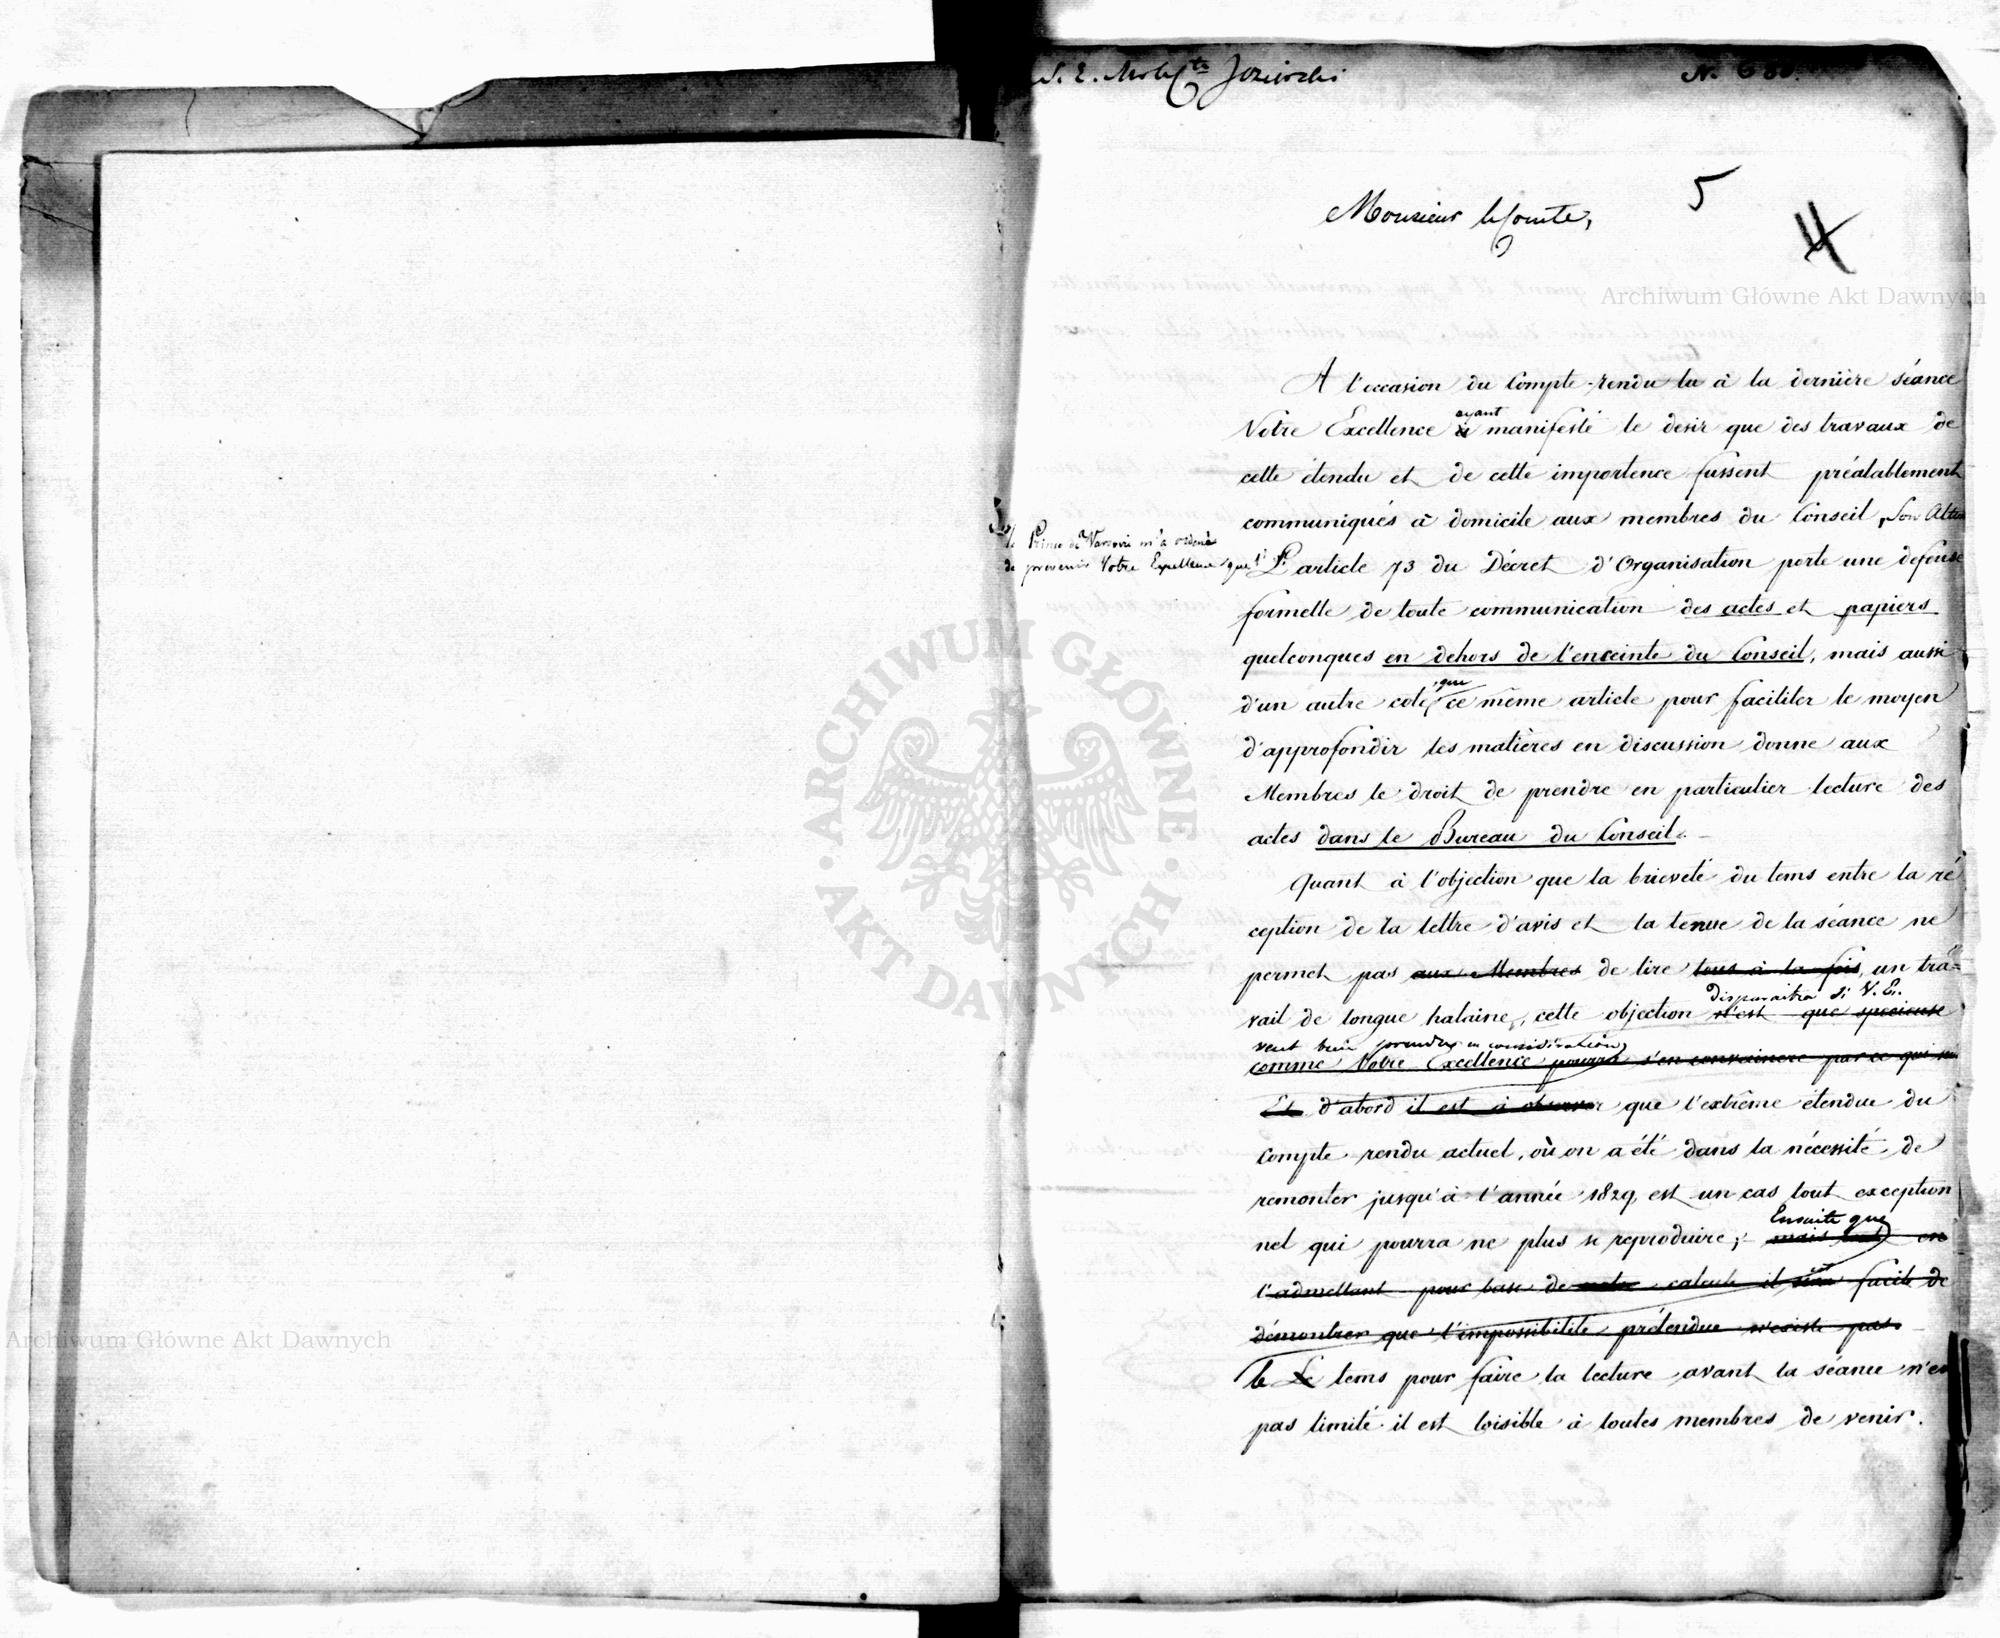 S. E. Mr le Cte Jezierski
N. 680.
5
4
Monsieur le Comte,
A l'occasion du Compte-rendu lu à la dernière séance
Votre Excellence ayant manifesté le desir que des travaux de
cette étendu et de cette importence fussent préalablement
communiqués à domicile aux membres du Conseil, Son Altesse
le Prince de Varsovie m'a ordonné
de prevenir Votre Excellence que si
L'article 73 du Décret d'Organisation porte une defense
formelle de toute communication des actes et papiers
quelconques en dehors de l'enceinte du Conseil, mais aussi
d'un autre coté, que ce même article pour faciliter le moyen
d'approfondir les matières en discussion donne aux
Membres le droit de prendre en particulier lecture des
actes dans le Bureau du Conseil.
Quant à l'objection que la brieveté du tems entre la ré
ception de la lettre d'avis et la tenue de la séance ne
permet pas aux Membres de lire tous à la fois, un tra=
vail de longue halaine, cette objection n'est que specieuse
disparaitra si V. E.
veut bien prendre en considération
comme Votre Excellence pourra s'en convaincre par ce qui
Et d'abord il est à observer que l'extrême étendue du
Compte rendu actuel, où on a été dans la nécessité de
remonter jusqu'à l'année 1829, est un cas tout exception
nel qui pourra ne plus se reproduire; mais tout en
Ensuite que
l'admettant pour base de notre calcule il sera facile de
démontrer que l'impossibilité prétendue n'existe pas.
le Le tems pour faire la lecture avant la séance n'est
pas limité il est loisible à toutes membres de venir.
Archiwum Główne Akt Dawnych
ARCHIWUM GŁÓWNE AKT DAWNYCH
Archiwum Główne Akt Dawnych